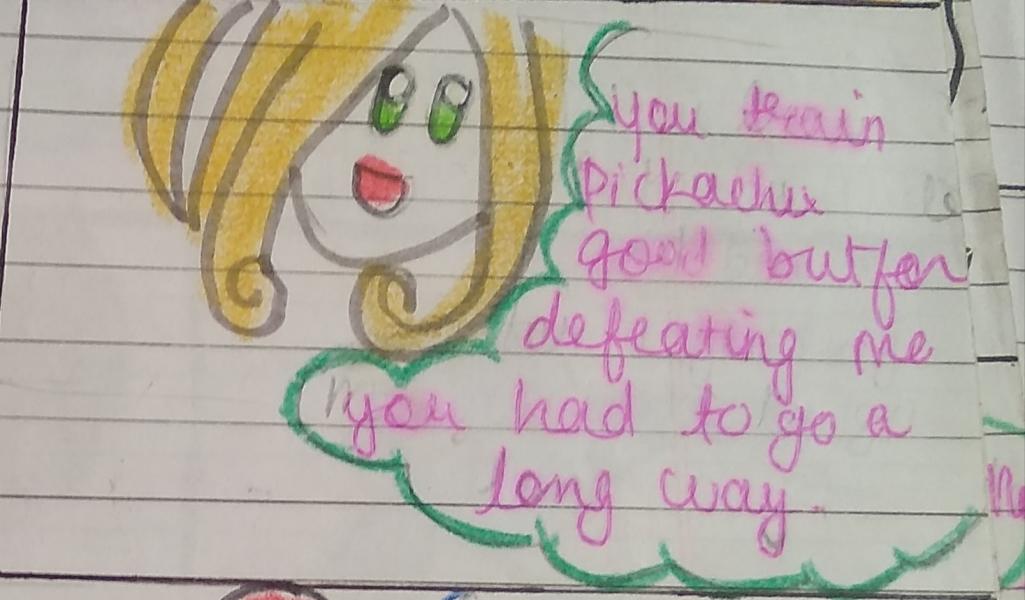 you train
Pickachu
good but for
defeating me
you had to go a
long way.